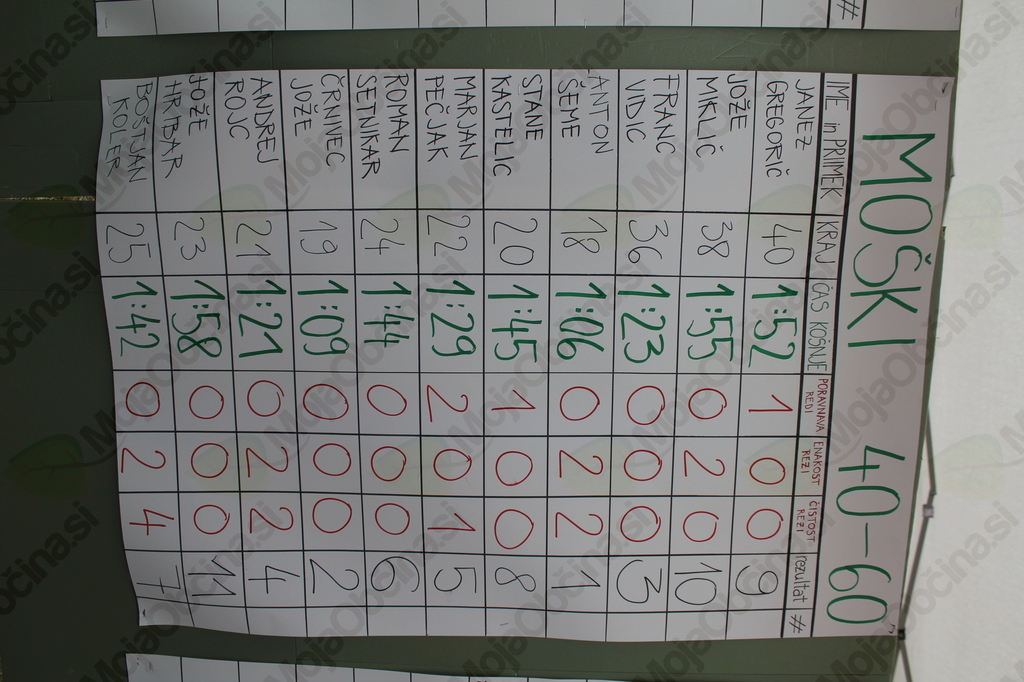 MOŠKI 40-60
IME in PRIIMEK KRAJ ČAS KOŠNJE PORAVNAVA REDI ENAKOST REZI ČISTOST REZI rezultat #
JANEZ GREGORIČ 40 1:52 1 0 0 9
JOŽE MIKLIČ 38 1:55 0 2 0 10
FRANC VIDIC 36 1:23 0 0 0 3
ANTON ŠEME 18 1:06 0 2 2 1
STANE KASTELIC 20 1:45 1 0 0 8
MARJAN PEČJAK 22 1:29 2 0 1 5
ROMAN SETNIKAR 24 1:44 0 0 0 6
ČRNIVEC JOŽE 19 1:09 0 0 0 2
ANDREJ ROJC 21 1:21 0 2 2 4
JOŽE HRIBAR 23 1:58 0 0 0 11
BOŠTJAN KOLER 25 1:42 0 2 4 7
#
MojaObčina.si